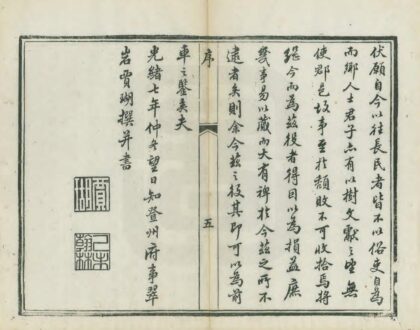 伏願自今以往長民者皆不以俗吏自為
而鄉人士君子亦有以樹文獻之望無
使郡邑故事至於頹敗不可收拾焉將
繼今而為茲役者得因以為損益庶
幾事易以蕆而大有裨於今茲之所不
逮者矣則余今茲之役其即可以為前
序
五
車之鑒矣夫
光緒七年仲冬望日知登州府事翠
岩賈瑚撰并書
賈瑚
己未翰林